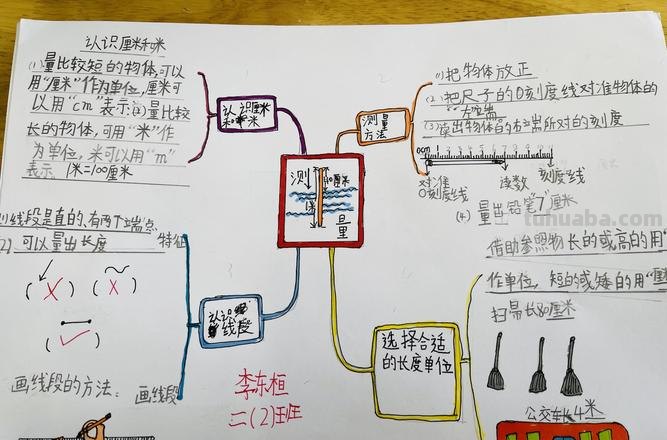 认识厘米和米
(1)量比较短的物体,可以
用"厘米"作为单位,厘米可
以用"cm"表示;(2)量比较
长的物体,可用"米"作
为单位,米可以用"m"
表示 1米=100厘米
认识厘米
和米
测量
方法
(1)把物体放正
(2)把尺子的0刻度线对准物体的
"左端
(3)读出物体的右端所对的刻度
0cm 1 2 3 4 5 6 7 8 9 10
对准
0刻度线
读数
刻度线
(4)量出铅笔"7"厘米
测
量
1米
厘米
(1)线段是直的,有两个端点
(2)可以量出长度
特征
(✗) (✗)
(✓)
画线段的方法:
画线段
认识
线段
李东桓
二(2)班
选择合适
的长度单位
借助参照物 长的或高的用"米"
作单位,短的或矮的用"厘
扫帚长80厘米
公交车长4米
tuhuaba.com